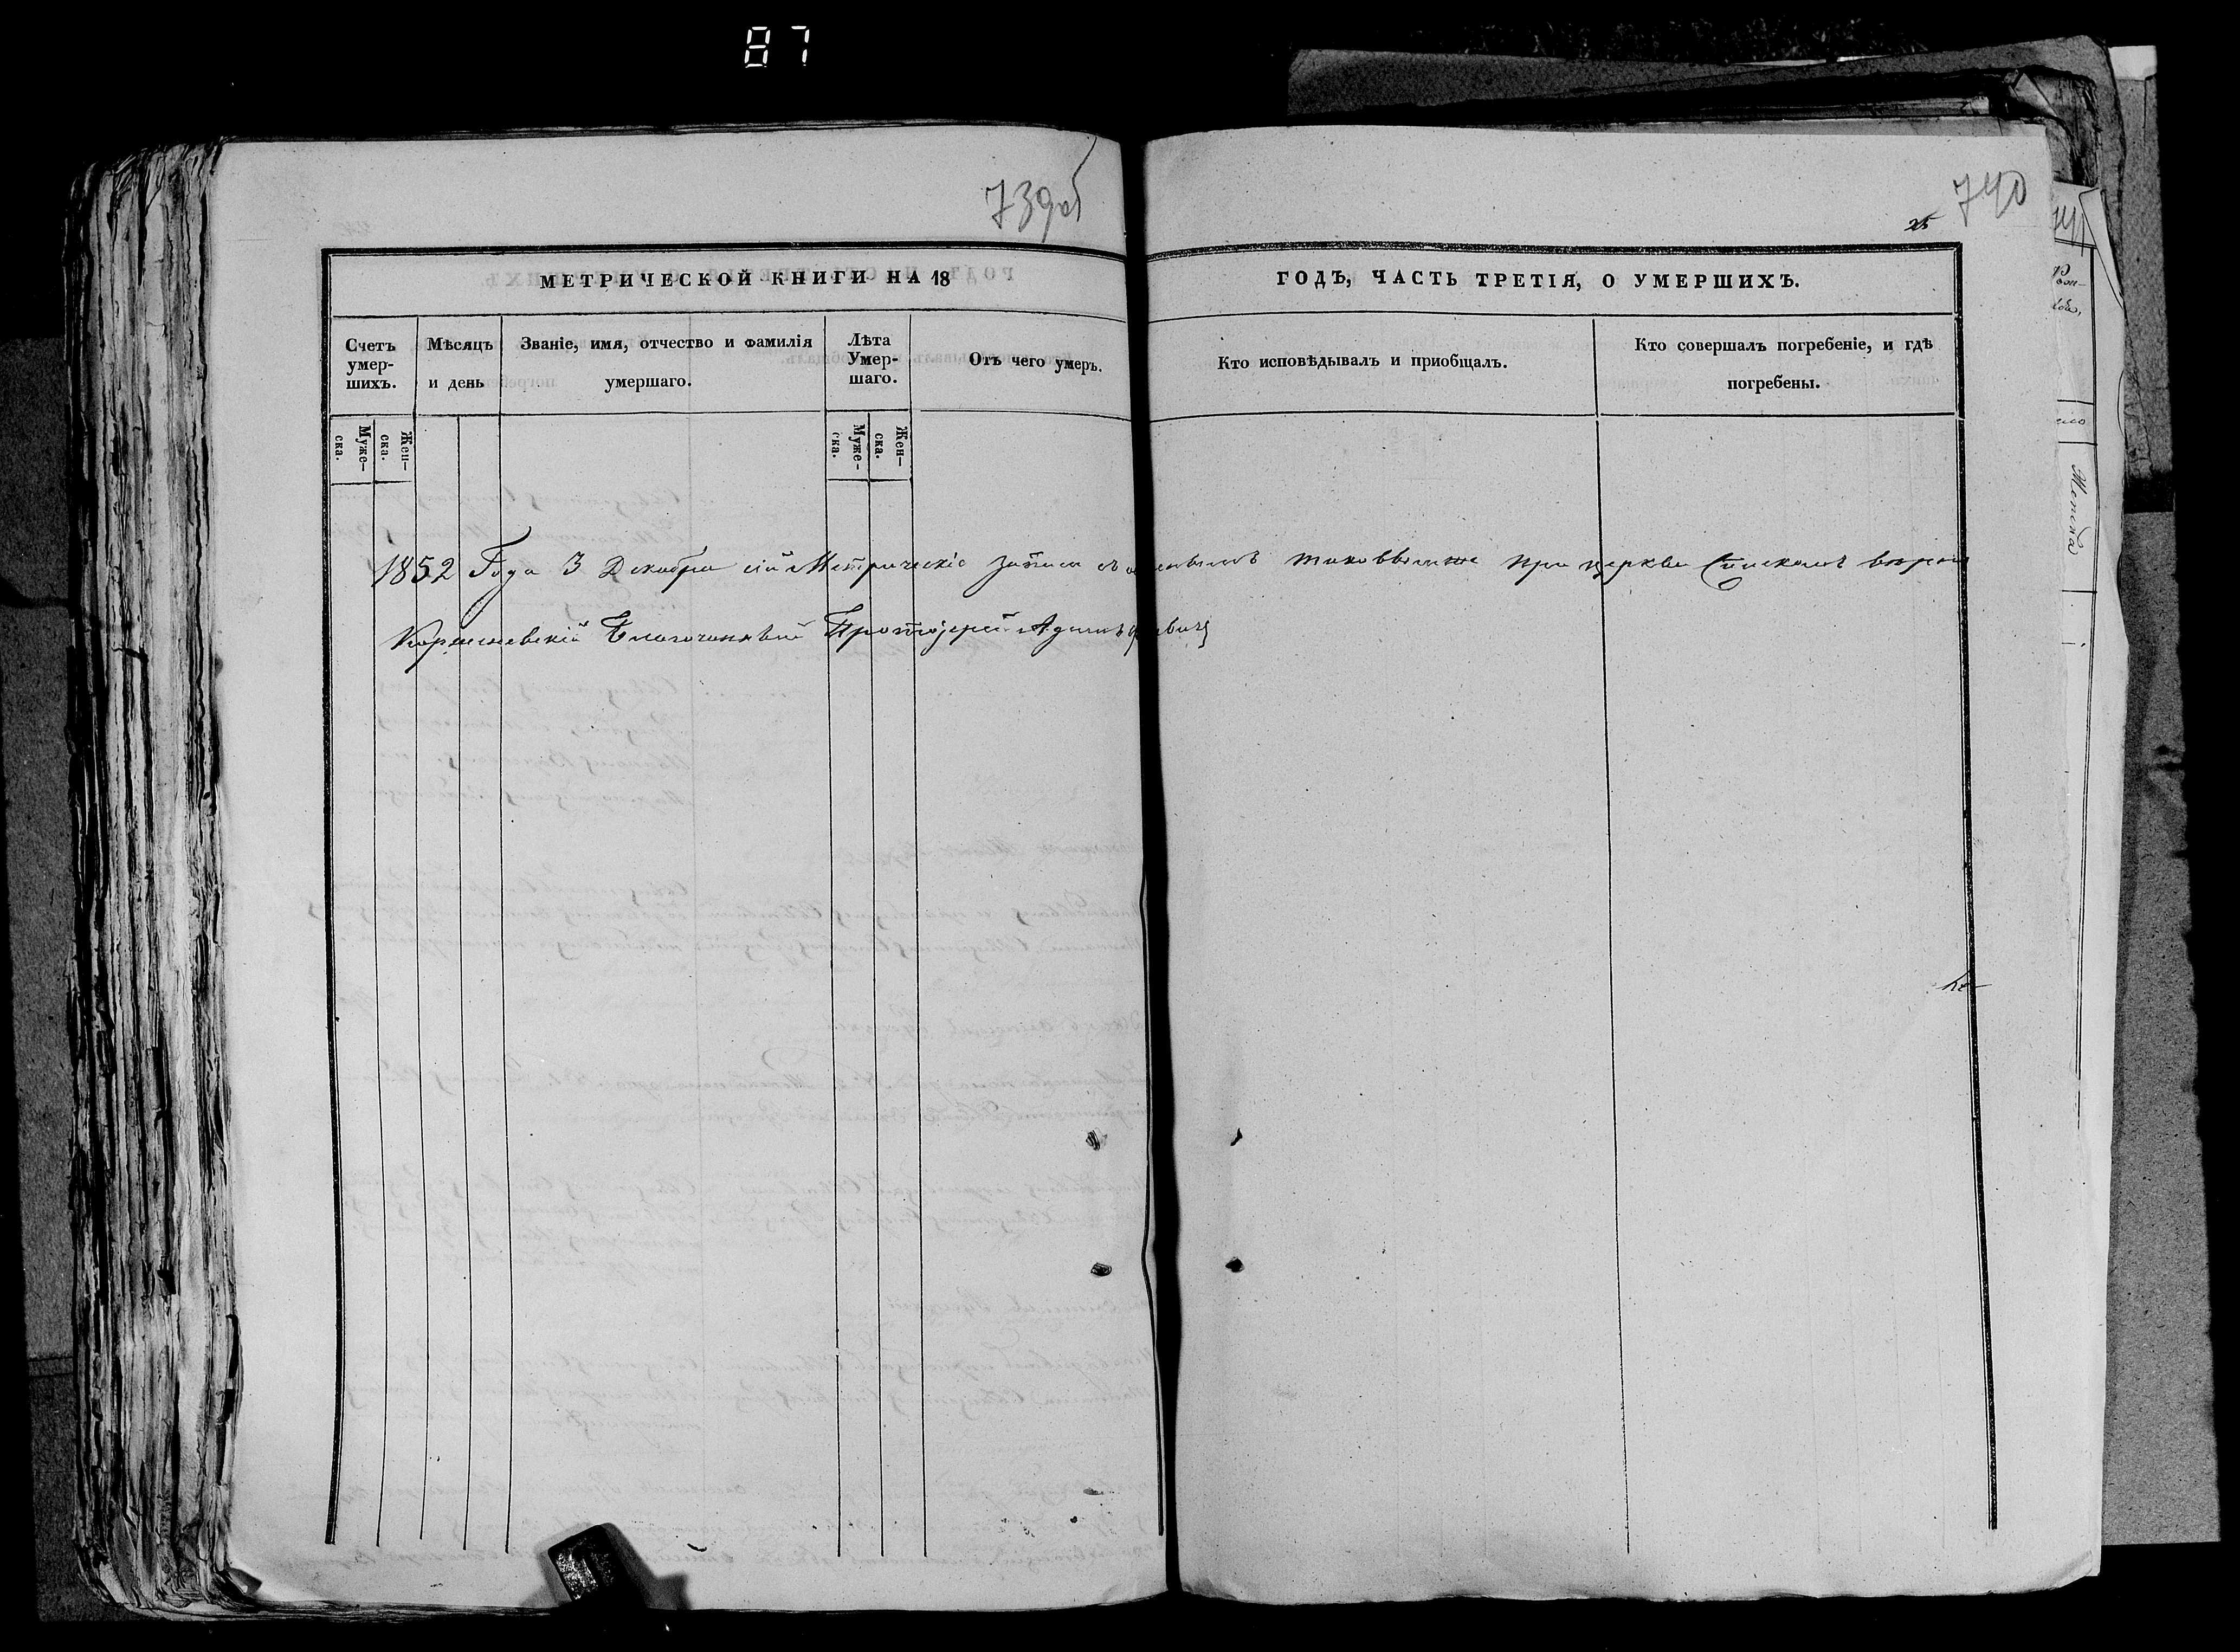 87
739об
740
25
МЕТРИЧЕСКОЙ КНИГИ НА 18 ГОДЪ, ЧАСТЬ ТРЕТІЯ, О УМЕРШИХЪ.
Счетъ умер-
шихъ.
Мѣсяцъ
и день
Званіе, имя, отчество и фамилія
умершаго.
Лѣта
Умер-
шаго.
Отъ чего умеръ.
Кто исповѣдывалъ и приобщалъ.
Кто совершалъ погребеніе, и гдѣ
погребены.
Муже-
ска.
Жен-
ска.
Муже-
ска.
Жен-
ска.
1852 Года 3 Декабря сіи Метрическіе записи съ таковымже при церкви Спискомъ
Благочинный Протоіерей Адамъ
Женска